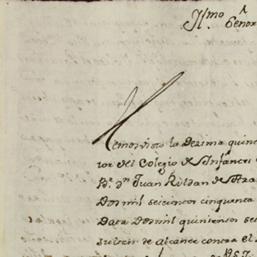 Yl.mo Señor
Hemos visto la Dezima quin
tor del Colegio de Infantes
P.e d.n Juan Roldan
Dos mil seiscientos cinquenta
Data Dos mil quinientos se
de alcance contra el